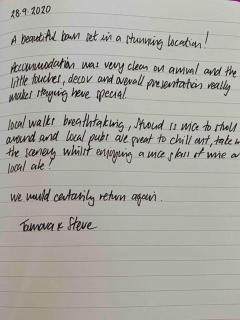 28.9.2020
A beautiful barn set in a stunning location!
Accommodation was very clean on arrival and the
little touches, decor and overall presentation really
makes staying here special.
Local walks breathtaking, Stroud is nice to stroll
around and local pubs are great to chill out, take in
the scenery whilst enjoying a nice glass of wine or
local ale!
We would certainly return again.
Tamara & Steve